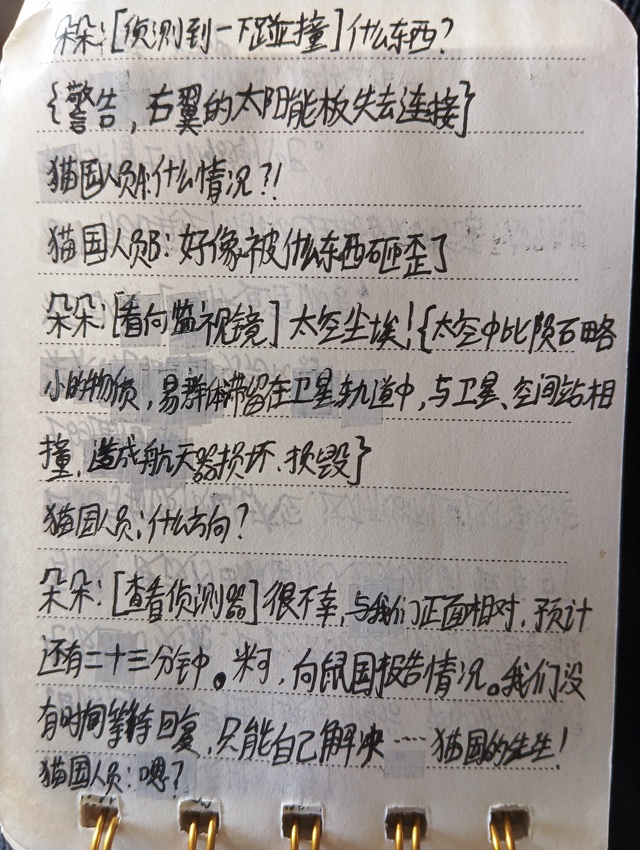 朵朵:[侦测到一下碰撞]什么东西?
{警告,右翼的太阳能板失去连接}
猫国人员A:什么情况?!
猫国人员B:好像被什么东西砸歪了
朵朵:[看向监视镜]太空尘埃!{太空中比陨石略
小的物质,易群体滞留在卫星轨道中,与卫星、空间站相
撞,造成航天器损坏、损毁}
猫国人员:什么方向?
朵朵:[查看侦测器]很不幸,与我们正面相对,预计
还有二十三分钟。米可,向鼠国报告情况。我们没
有时间等待回复,只能自己解决……猫国的先生!
猫国人员:嗯?